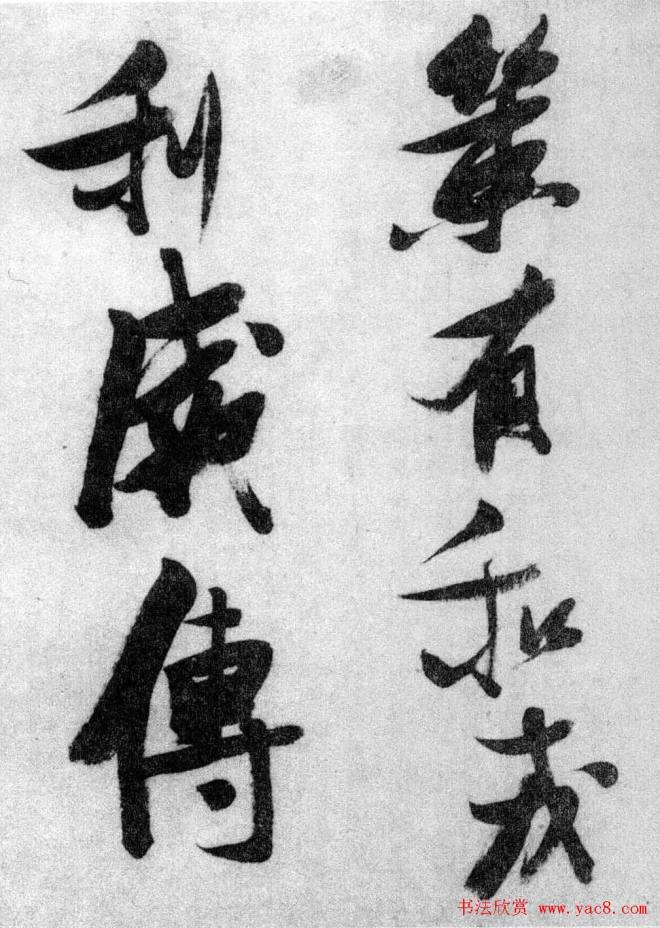 策有和戎
利威傳
书法欣赏 www.yac8.com